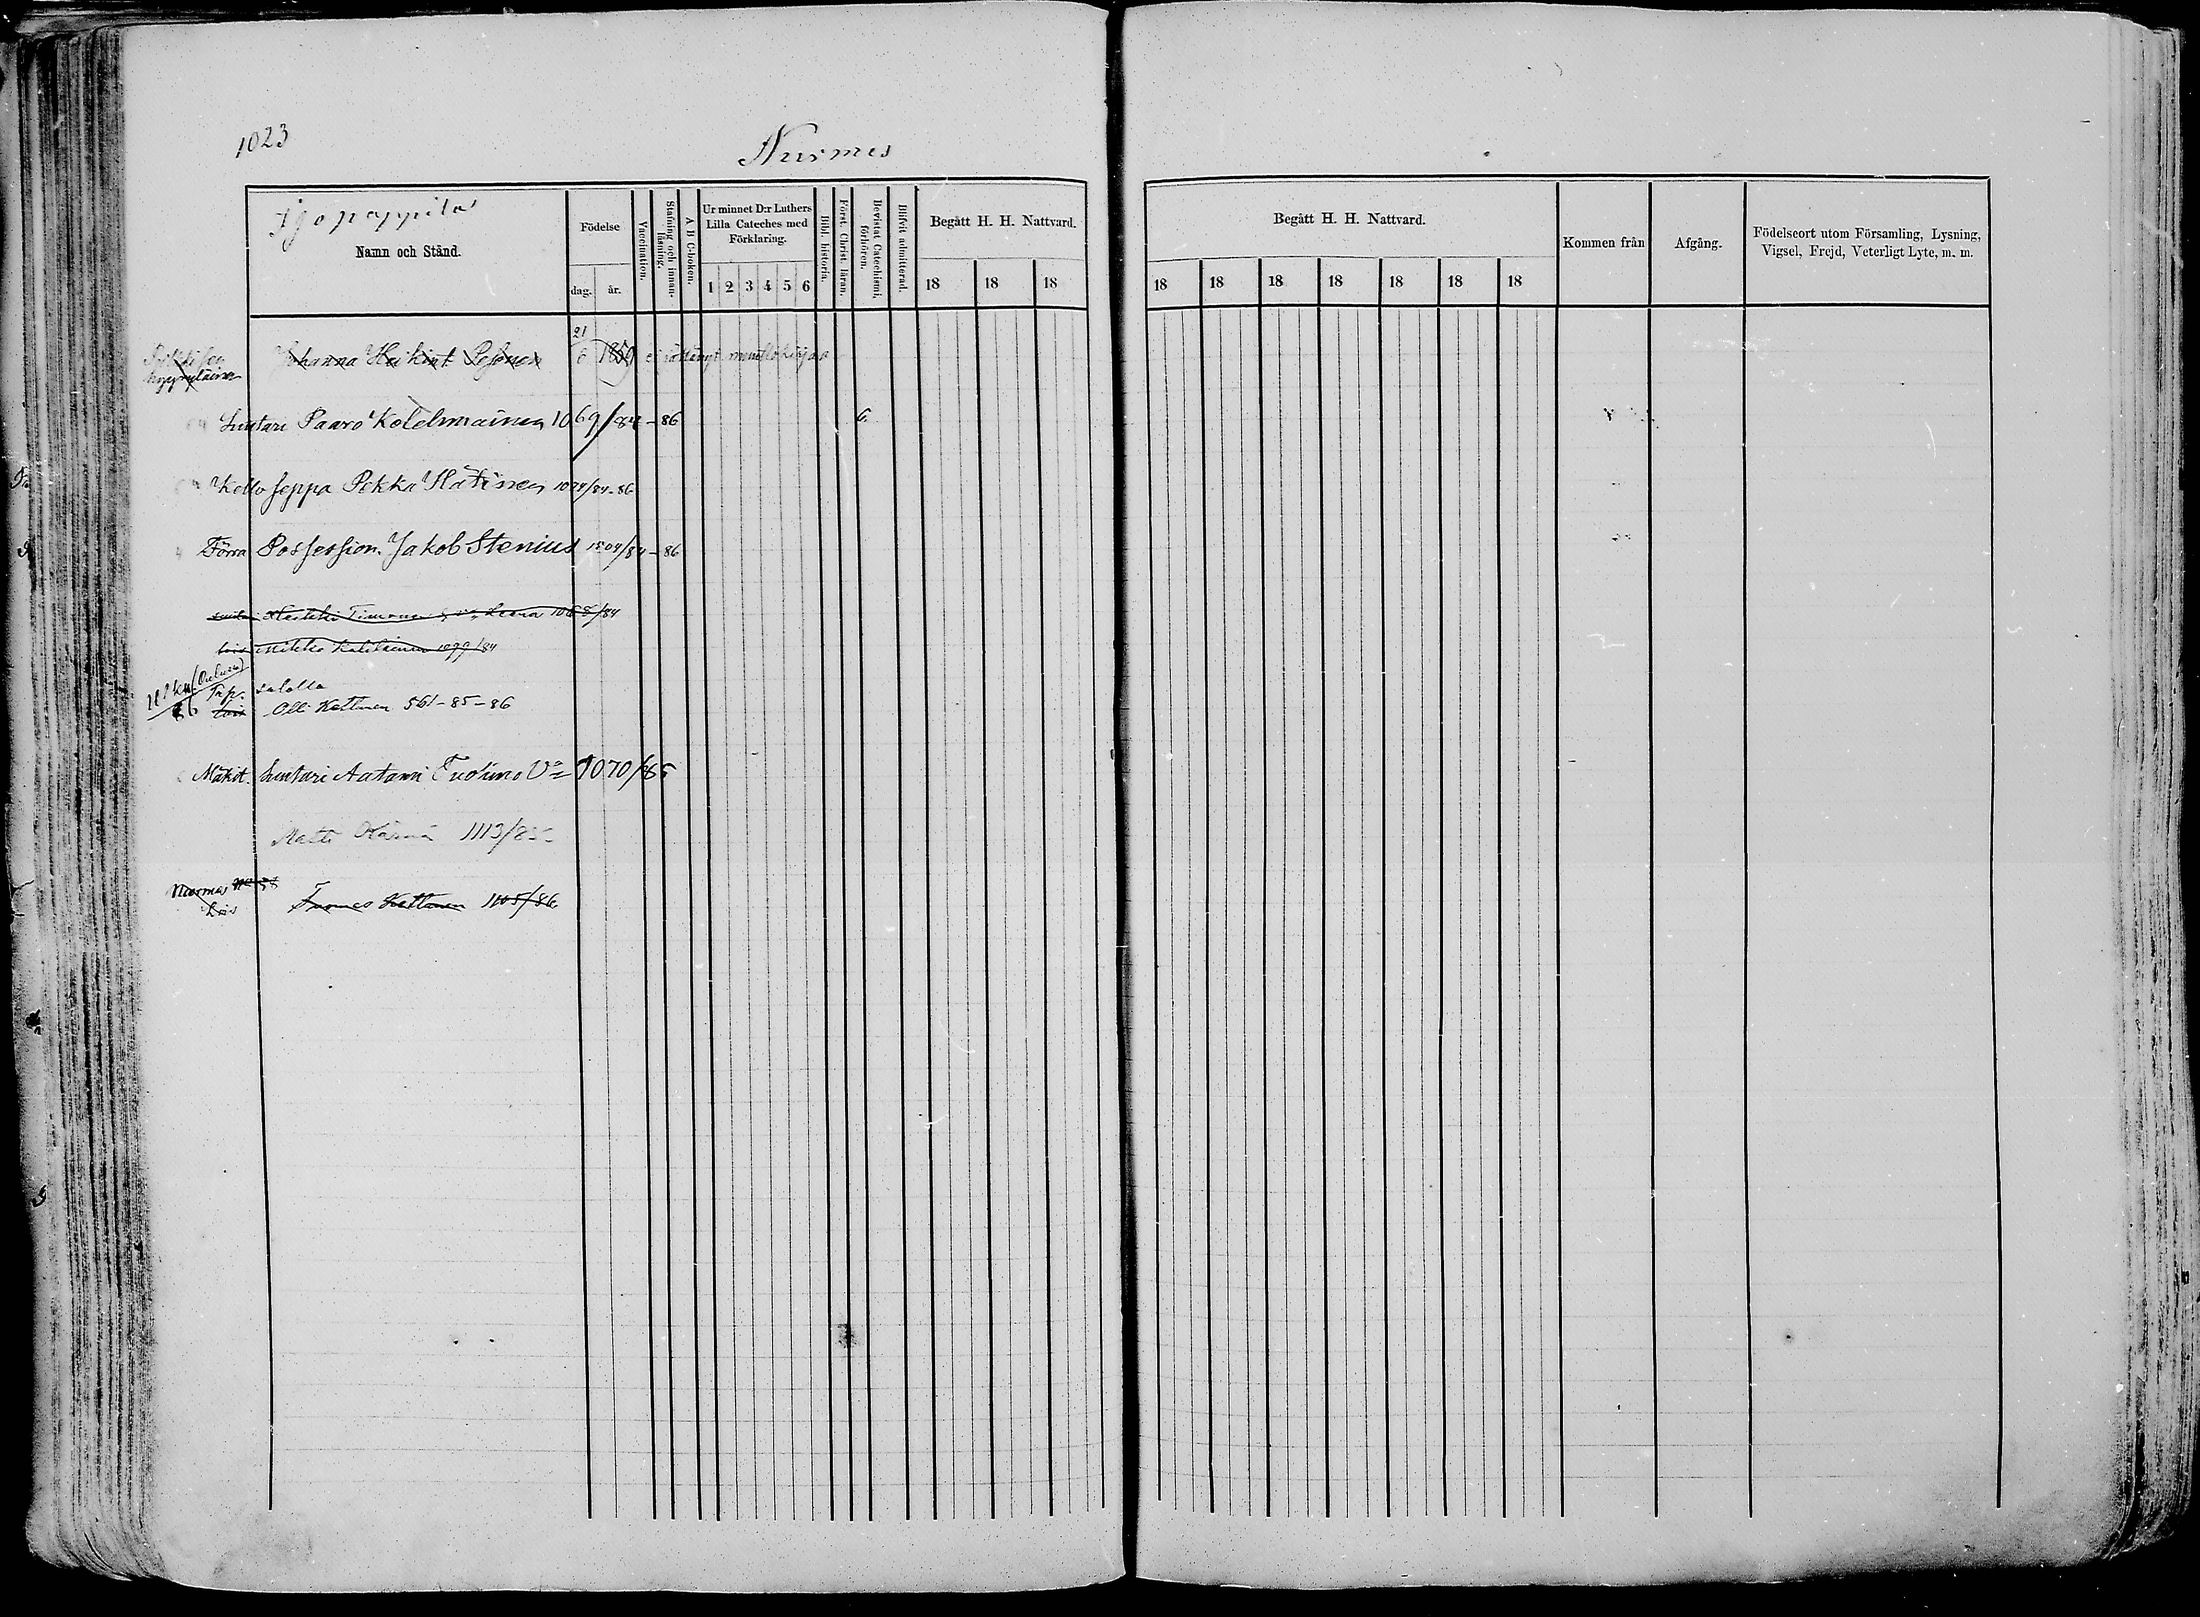 1023
Nurmes
Namn och Stånd.
Födelse
dag. år.
Vaccination.
Stafning och innanläsning.
A B C-boken.
Ur minnet D:r Luthers Lilla Cateches med Förklaring.
1 2 3 4 5 6
Bibl. historia.
Först. Christ. läran.
Bevistat Catechismi, förhören.
Blifvit admitterad.
Begått H. H. Nattvard.
18 18 18
Begått H. H. Nattvard.
18 18 18 18 18 18 18
Kommen från
Afgång.
Födelseort utom Församling, Lysning, Vigsel, Frejd, Veterligt Lyte, m. m.
Johanna Heikint. 21 6 1859
Suutari Paavo Kolehmainen 1069/84-86 6.
Kelloseppä Pekka 1074/84-86
Förra Possession. Jakob Stenius 1504/84-86
Heikki Timonen Leena 1068/84
lois Mikko 1099/84
86 lois Olli Kettunen 561-85-86
Mäkit. Suutari Aatami Tuolimo 1070/85
Matti Kärnä 1113/85-
Nurmes
Lois Tuomas Kettunen 1105/86